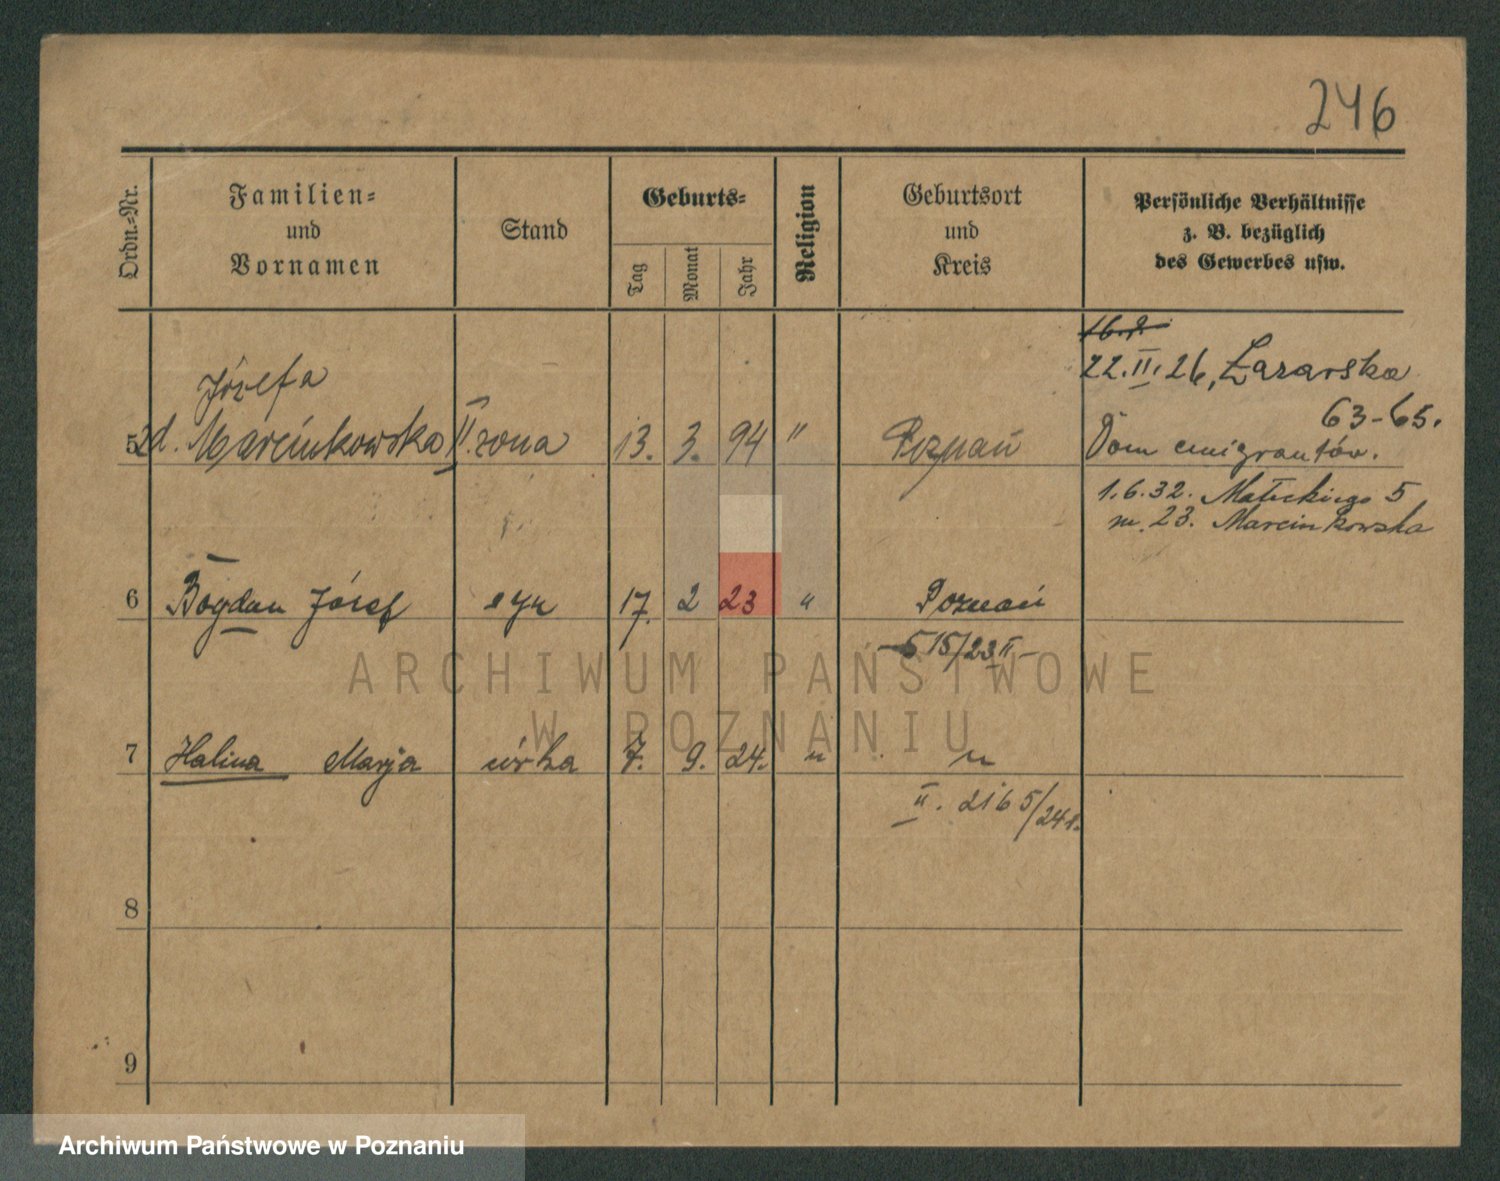 246
Ordn.-Nr.
Familien-
und
Vornamen
Stand
Geburts-
Tag
Monat
Jahr
Religion
Geburtsort
und
Kreis
Persönliche Verhältnisse
z. B. bezüglich
des Gewerbes usw.
22.II.26, Łazarska
63-65.
Józefa
5 d. Marcinkowska II. żona 13. 3. 94 " Poznań Dom emigrantów.
1.6.32. Małeckiego 5
m. 23. Marcinkowska
6 Bogdan Józef syn 17. 2 23 " Poznań
515/23 II
7 Halina Marja córka 7. 9. 24. " "
II. 2165/24
8
9
ARCHIWUM PAŃSTWOWE
W POZNANIU
Archiwum Państwowe w Poznaniu